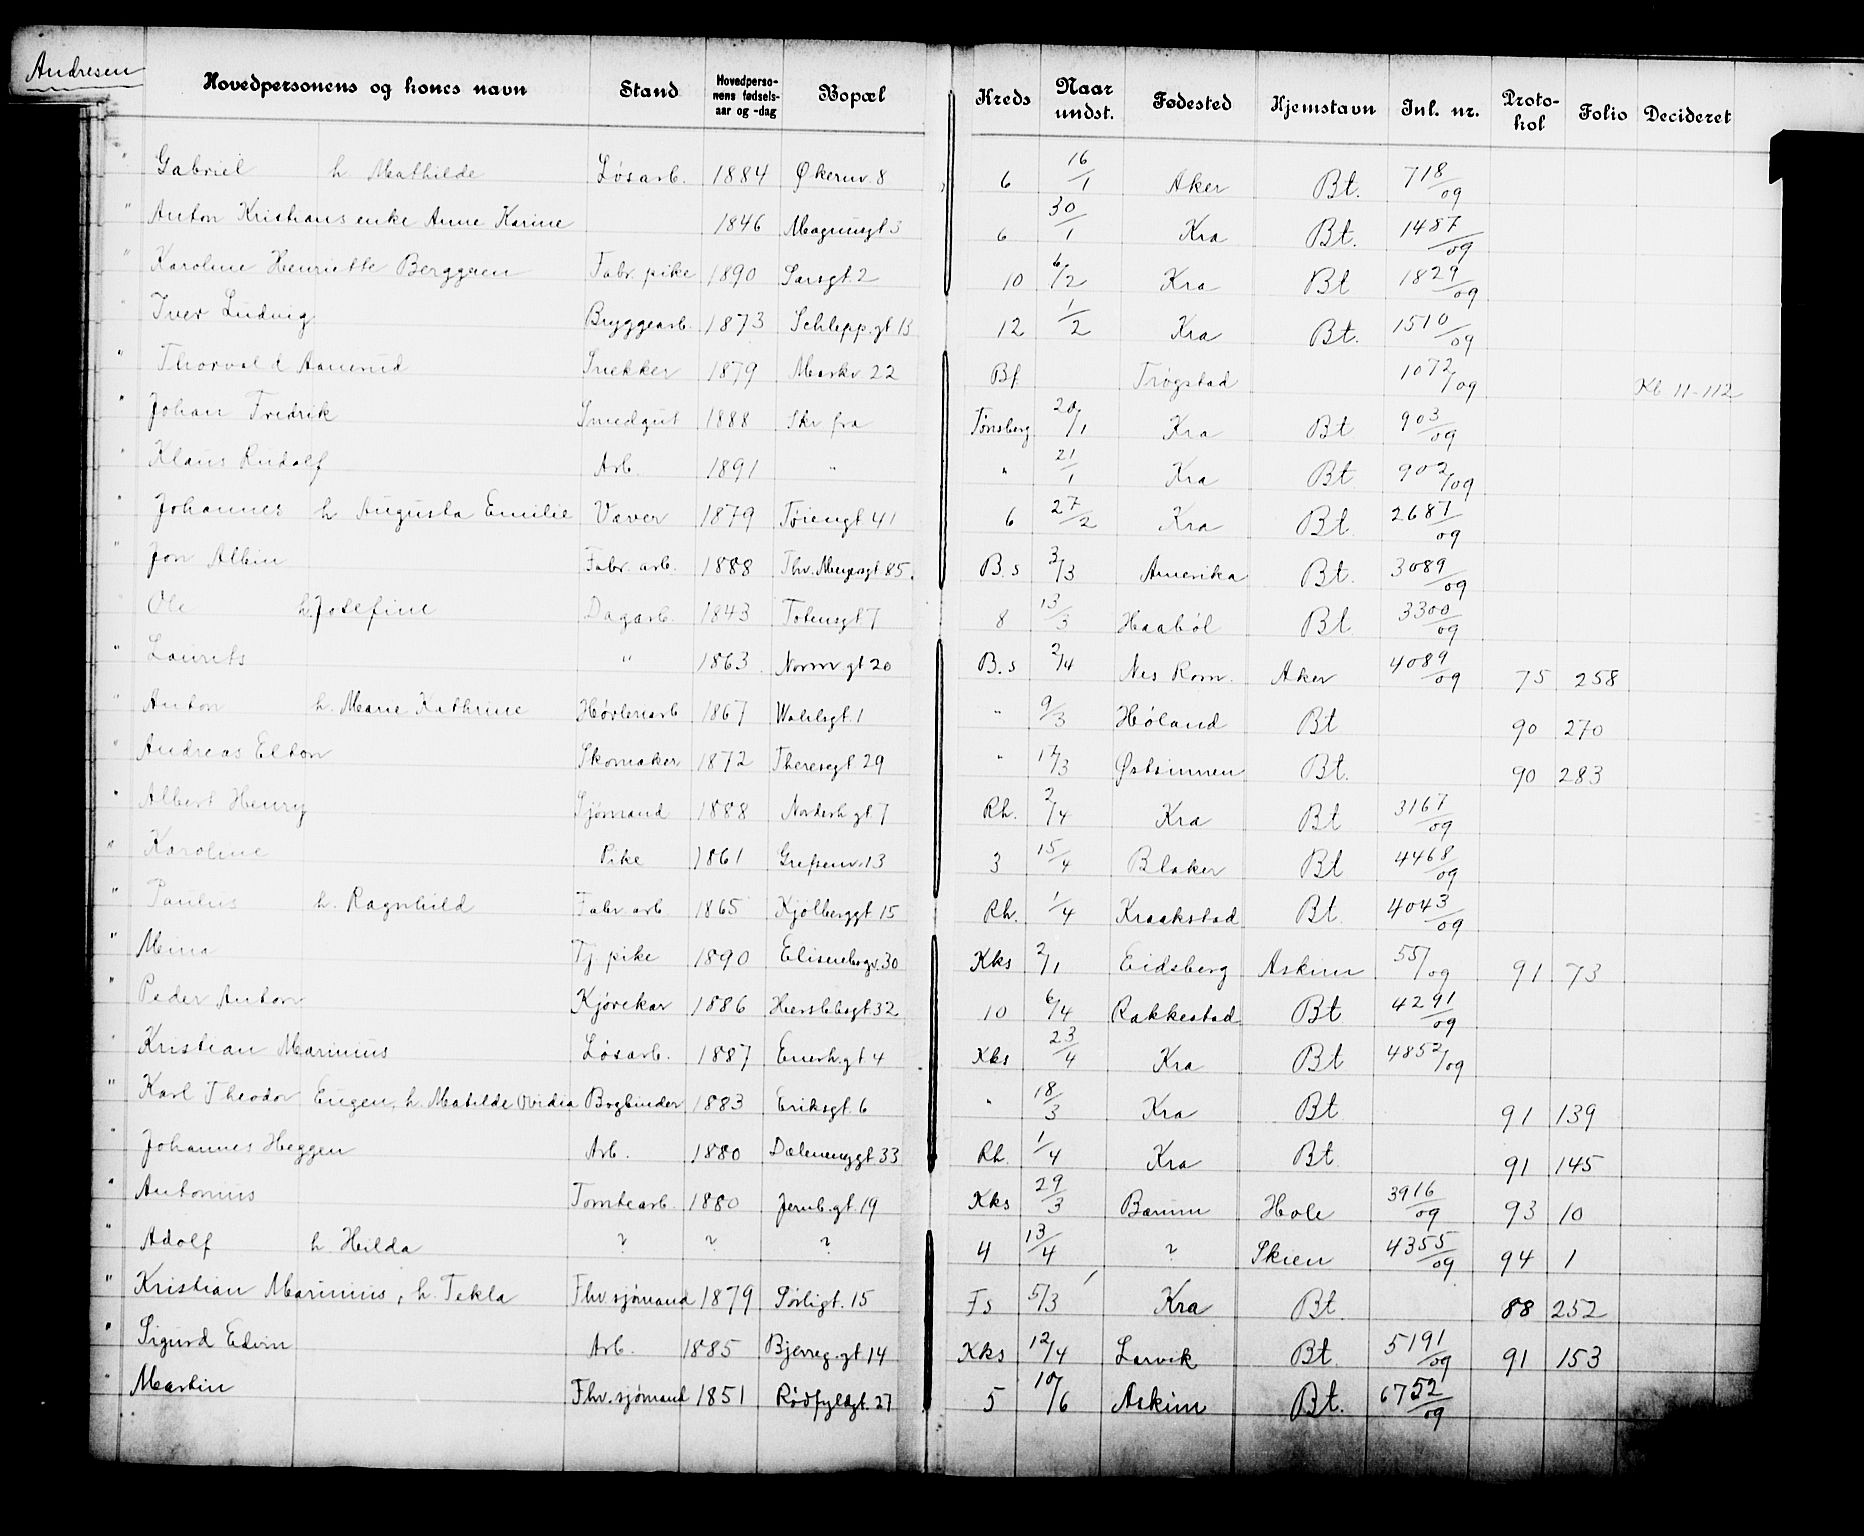 Andresen
Hovedpersonens og kones navn Stand Hovedpersonens fødselsaar og -dag Bopæl Kreds Naar undst. Fødested Hjemstavn Inl. nr. Protokol Folio Decideret
" Gabriel h Mathilde Løsarb. 1884 Økernv. 8 6 16/1 Aker Bt. 718/09
" Anton Kristians enke Anne Karine 1846 Magnusgt 3 6 30/1 Kra Bt. 1487/09
" Karoline Henriette Berggren Fabr. pike 1890 Sarsgt. 2 10 6/2 Kra Bt 1829/09
" Iver Ludvig Bryggearb. 1873 Schlepp.gt 13 12 1/2 Kra Bt. 1510/09
" Thorvald Aamrud Snekker 1879 Markv 22 Bf Trøgstad 1072/09 Kl 11-112
" Johan Fredrik Smedgut 1888 Skr fra Tønsberg 20/1 Kra Bt 903/09
" Klaus Rudolf Arb. 1891 " " 21/1 Kra Bt 902/09
" Johannes h Augusta Emilie Væver 1879 Tøiengt 41 6 27/2 Kra Bt 2687/09
" Jon Albin Fabr. arb. 1888 Thv. Meyersgt 85. B.s 3/3 Amerika Bt. 3089/09
Ole h. Josefine Dagarb. 1843 Totensgt 7 8 13/3 Haabøl Bt 3300/09
" Laurits " 1863 Norm gt 20 B.s 2/4 Nes Rom. Aker 4089/09 75 258
" Anton h. Marie Kathrine Høvleriarb 1867 Wahlsgt. 1 " 9/3 Høland Bt 90 270
" Andreas Elton Skomaker 1872 Theresegt 29 " 17/3 Østsinnen Bt. 90 283
" Albert Henry Sjømand 1888 Norderh gt 7 Rh. 2/4 Kra Bt 3167/09
" Karoline Pike 1861 Grefsenv. 13 3 15/4 Blaker Bt 4468/09
" Paulus h. Ragnhild Fabr arb 1865 Kjølberggt 15 Rh. 1/4 Kraakstad Bt. 4043/09
" Mina Tj. pike 1890 Elisenbergv. 30 Kks 2/1 Eidsberg Askim 551/09 91 73
" Peder Anton Kjørekar 1886 Herslebsgt 32 10 6/4 Rakkestad Bt 4291/09
" Kristian Marinius Løsarb. 1887 Enerh. gt 4 Kks 23/4 Kra Bt 4852/09
" Karl Theodor Eugen, h. Matilde Ovidia Bogbinder 1883 Eriksgt. 6 " 18/3 Kra Bt 91 139
" Johannes Heggen Arb. 1880 Dælenenggt 33 Rh. 1/4 Kra Bt. 91 145
" Antonius Tomtearb. 1880 Jernb. gt. 19 Kks 29/3 Bærum Hole 3916/09 93 10
" Adolf h Hilda ? ? ? 4 13/4 ? Skien 4355/09 94 1
" Kristian Marinius, h. Tekla Fhv. sjømand 1879 Sørligt. 15 Fs 5/3 Kra Bt. 88 252
" Sigurd Edvin Arb. 1885 Bjerreg. gt. 14 Kks 12/4 Larvik Bt 5191/09 91 153
" Martin Fhv. sjømand 1851 Rødfyldgt. 27 5 10/6 Askim Bt. 6752/09